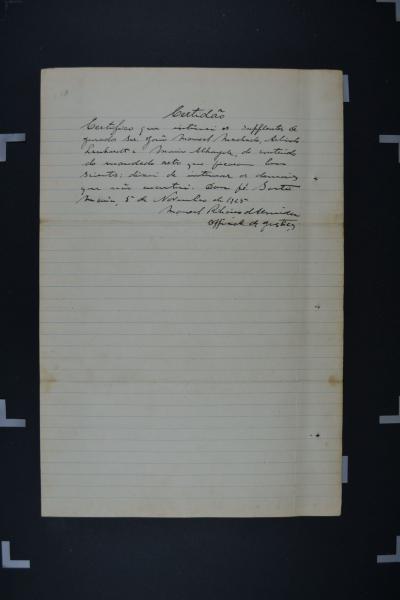 Certidão
Certifico que intimei os supplentes de
jurado snr João Manoel Machado, Arlindo
e Mario do conteúdo
do mandado retro que ficaram bem
scientes; deixei de intimar os demais
que não encontrei. Dou fé. Santa
Maria, 5 de Novembro de 1925
Manoel Ribeiro de Almeida
Official de Justiça